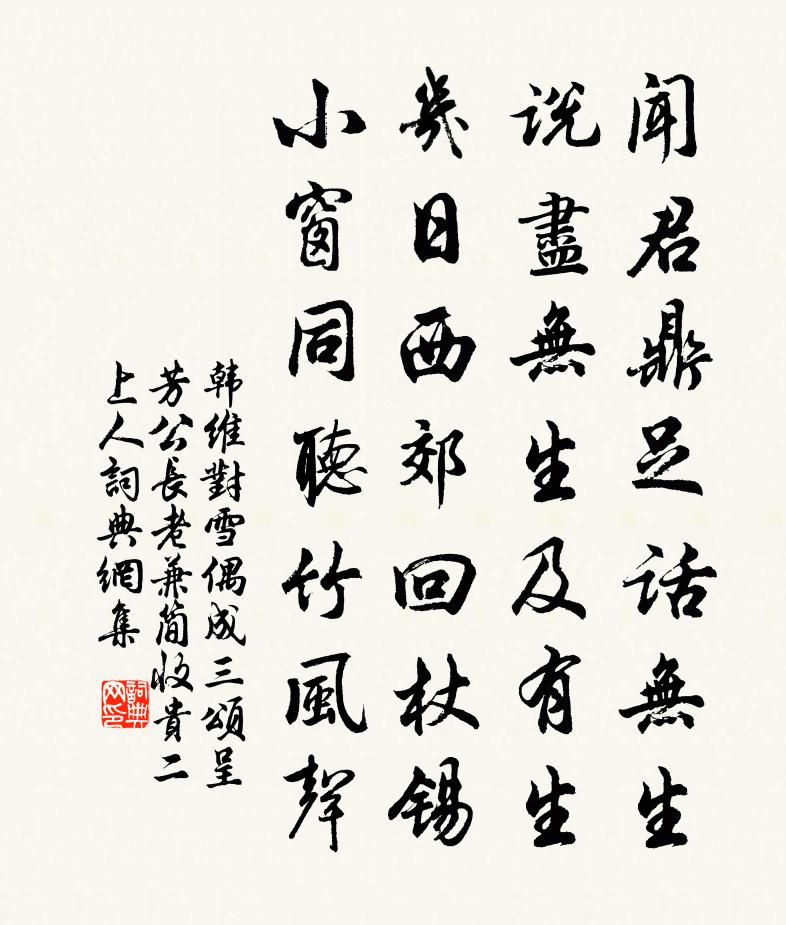 闻君鼎足话無生
说盡無生及有生
幾日西郊回杖锡
小窗同聴竹風聲
韩维對雪偶成三頌呈
芳公長老兼简收貴二
上人詞典網集
詞典网印